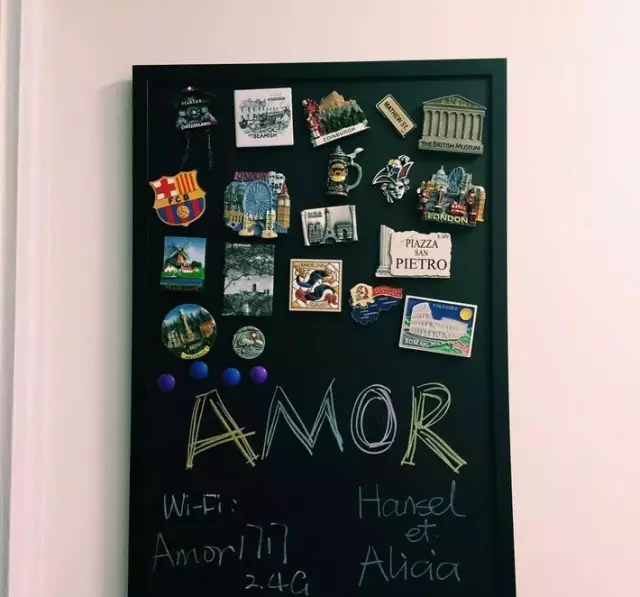 PILATUS
SWITZERLAND
BEAMISH
EDINBURGH
MATHEW ST.
THE BRITISH MUSEUM
FCB
LONDON
LONDON
PIAZZA
SAN
PIETRO
DURHAM
BARCELONA
COLOSSEO
ROMA
AMOR
Wi-Fi:
Amor1717
2.4G
Hansel
et
Alicia